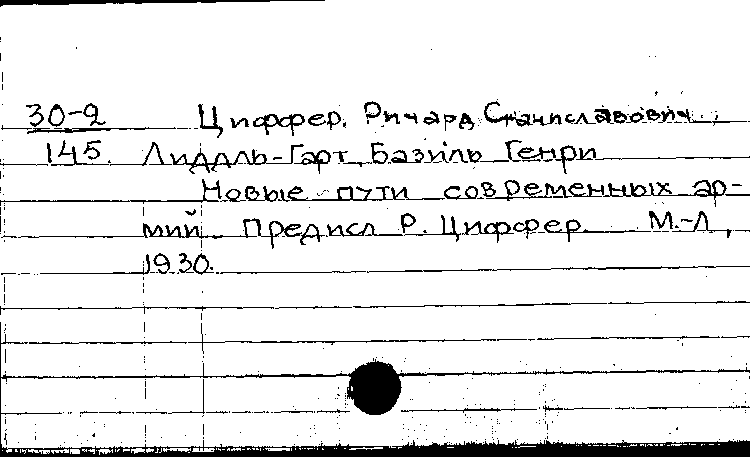 30-2 Циффер, Ричард Станиславович,
145. Лиддль-Гарт, Базиль Генри
Новые пути современных ар-
мий. Предисл Р. Циффер. М.-Л,
1930.